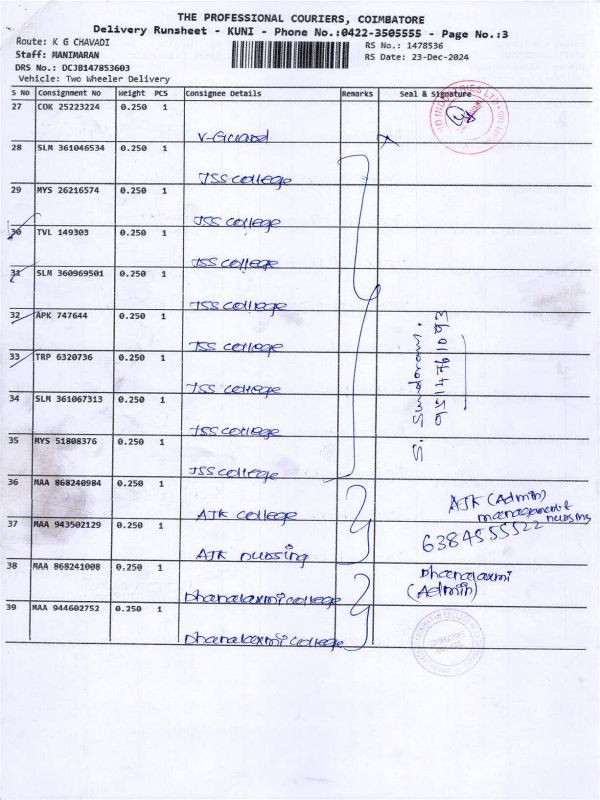 THE PROFESSIONAL COURIERS, COIMBATORE
Delivery Runsheet - KUNI - Phone No.:0422-3505555 - Page No.:3
Route: K G CHAVADI
RS No.: 1478536
Staff: MANIMARAN
RS Date: 23-Dec-2024
DRS No.: DCJB147853603
Vehicle: Two Wheeler Delivery
S No Consignment No Weight PCS Consignee Details Remarks Seal & Signature
27 COK 25223224 0.250 1
V-Guard
28 SLM 361046534 0.250 1
JSS college
29 MYS 26216574 0.250 1
JSS college
30 TVL 149303 0.250 1
JSS college
31 SLM 360969501 0.250 1
JSS college
32 APK 747644 0.250 1
JSS college
33 TRP 6320736 0.250 1
JSS college
34 SLM 361067313 0.250 1
JSS college
35 MYS 51808376 0.250 1
JSS college
36 MAA 868240984 0.250 1
AJK college
37 MAA 943502129 0.250 1
AJK nursing
38 MAA 868241008 0.250 1
Dhanalaxmi college
39 MAA 944602752 0.250 1
Dhanalaxmi college
AJK (Admin)
management &
nursing
6384555522
Dhanalaxmi
(Admin)